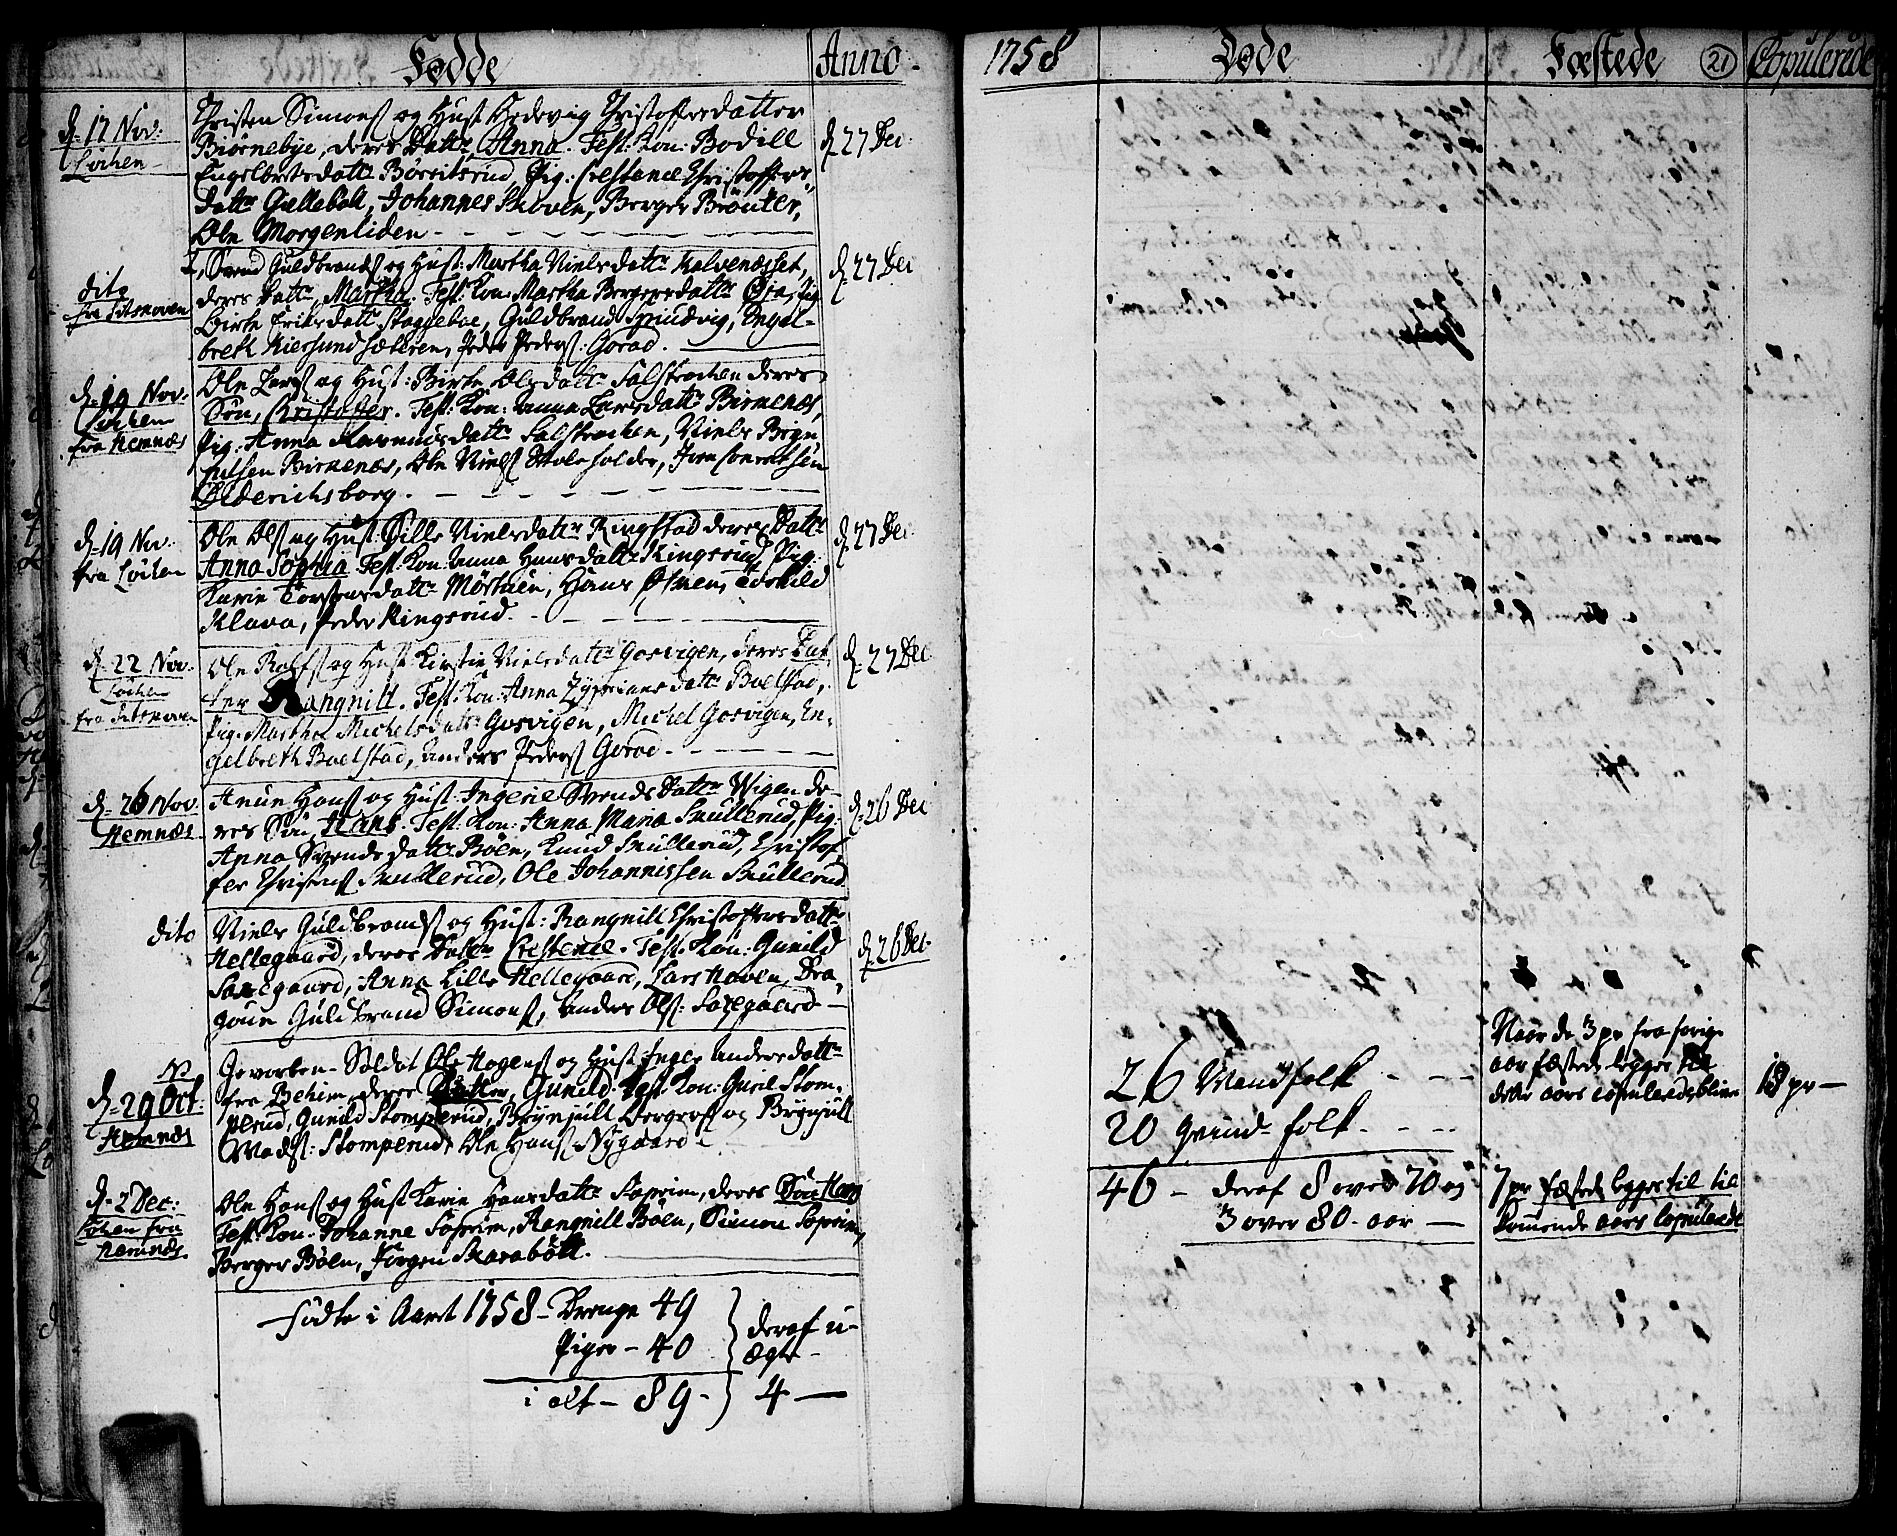 Fødde
Anno
1758
Døde
Fæstede
21
Copulerede
d. 17 Nov:
Løchen
Christen Simons og Hust Hedevig Christoffersdatter
Biørnebye, deres Dattr Anna. Test: Kon: Bodill
Engelbretsdattr Børsitsrud, Pig: Crestence Christoffers
dattr Gællebøll, Johannes Skoven, Berger Brønter,
Ole Morgenliden
d. 27 Dec:
dito
fra Sitskoven
Svend Guldbrands og Hust: Martha Nielsdattr Kalvenæsset,
deres Dattr Martha. Test: Kon: Martha Bergersdattr Øra, Pig
Birte Eriksdattr Staggeboe, Guldbrand Spindvig, Engel-
breth Kiersund sæteren, Peder Peders: Gorod.
d. 27 Dec
d. 19 Nov:
Løchen
fra Hemnæs
Ole Lars og Hust: Birte Olsdattr Falstrochen deres
Søn, Christoffer. Test: Kon: Anna Larsdattr Birkenæs,
Pig: Anna Rasmusdattr Falstrochen, Niels Bryn
julsen Birkenæs, Ole Niels
Diderichsborg.
d. 19 Nov.
fra Løchen
Ole Ols og Hust: Sille Nielsdattr Ringstad deres Dattr
Anna Sophia Test: Kon: Anna Hansdattr Ringsrud, Pig:
Karie Torstensdattr Mørtuen, Hans Østnen, Eskild
Klava, Peder Ringsrud.
d. 27 Dec:
d. 22 Nov.
Løchen
fra Sitskoven
Ole Rolfs og Hust Kirstie Nielsdattr Gosvigen, deres Dat
ter Rangnill. Test: Kon: Anna Zypriansdattr Boelstad,
Pig: Martha Michelsdattr Gosvigen, Michel Gosvigen, En-
gelbreth Boelstad, Anders Peders Gorod
d. 27 Dec
d. 26 Nov.
Hemnæs
Hans og Hust: Ingerie Svends Dattr Wigen de-
res Søn, Hans. Test: Kon: Anna Maria Snullerud, Pig:
Anna Svends Dattr Bøen, Knud Snullerud, Christof
fer Christens Snullerud, Ole Johannissen Snullerud
d. 26 Dec
dito
Niels Guldbrands og Hust: Rangnill Christoffersdattr
Hellegaard, deres Dattr Crestence. Test: Kon: Gunild
Saxegaard, Anna Lille Hellegaard, Lars Haven, Dra
goun Guldbrand Simons, Anders Ols: Saxegaard
d. 26 Dec.
NB
d. 29 Oct:
Hemnæs
Gevorben Soldat Ole Hagens og Hust Inger Andersdattr
fra Behim, deres Datter, Gunild. Test: Kon: Guril Stom-
perud, Gunild Stomperud, Brynjull Bergers og Brynjull
Mads: Stomperud, Ole Hans Nygaard
d. 2 Dec:
Løchen fra
Hemnæs
Ole Hans og Hust Karie Hansdattr Soprim, deres Søn Hans
Test: Kon: Johanne Soprim, Rangnill Bøen, Simon Soprim,
Berger Bøen, Jørgen Skarabøll.
Fødte i Aaret 1758 Drenge 49
Piger 40
i alt 89
deraf u-
ægte
4
26 Mandfolk
20 Qvindfolk
46 deraf 8 over 70 og
3 over 80 aar
Naar de 3 pr fra forige
aar fæstede legges til
dette aars copulerede bliver
18 pr
7 pr fæstede legges til til
kommende aars Copulerede